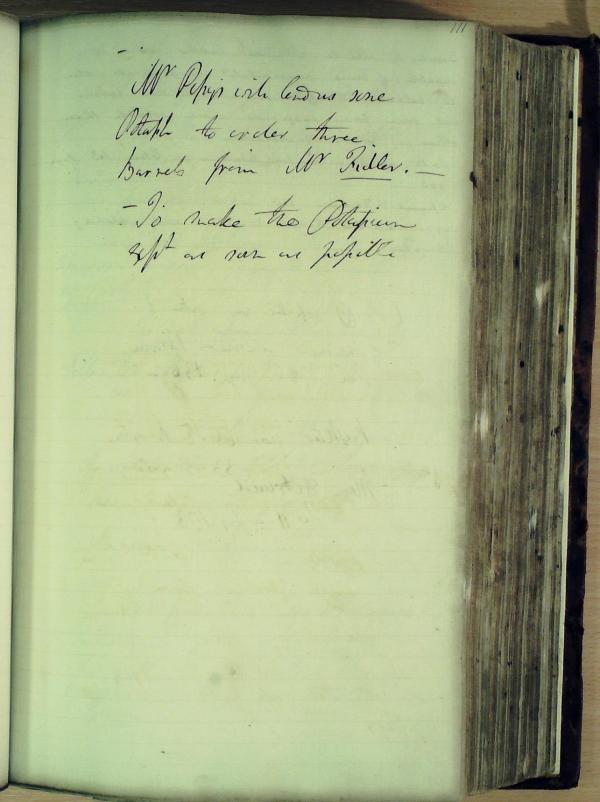 111
Mr Pepys will lend us some
Potash to order three
Barrels from Mr Fidler. —
- To make the Potassium
Expt as soon as possible